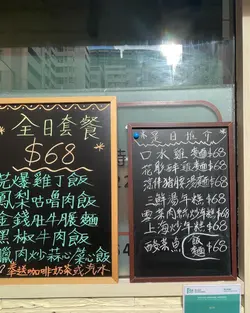 全日套餐
$68
芫爆雞丁飯
鳳梨咕嚕肉飯
金錢肚牛腩麵
黑椒牛肉飯
臘肉炒菜心煲心飯
奉送咖啡奶茶或汽水
是日推介
口水雞 $68
$68
湯麵 $68
三鮮湯年糕 $68
雪菜肉絲炒年糕 $68
上海炒年糕 $68
酸菜魚 飯 麵 $68